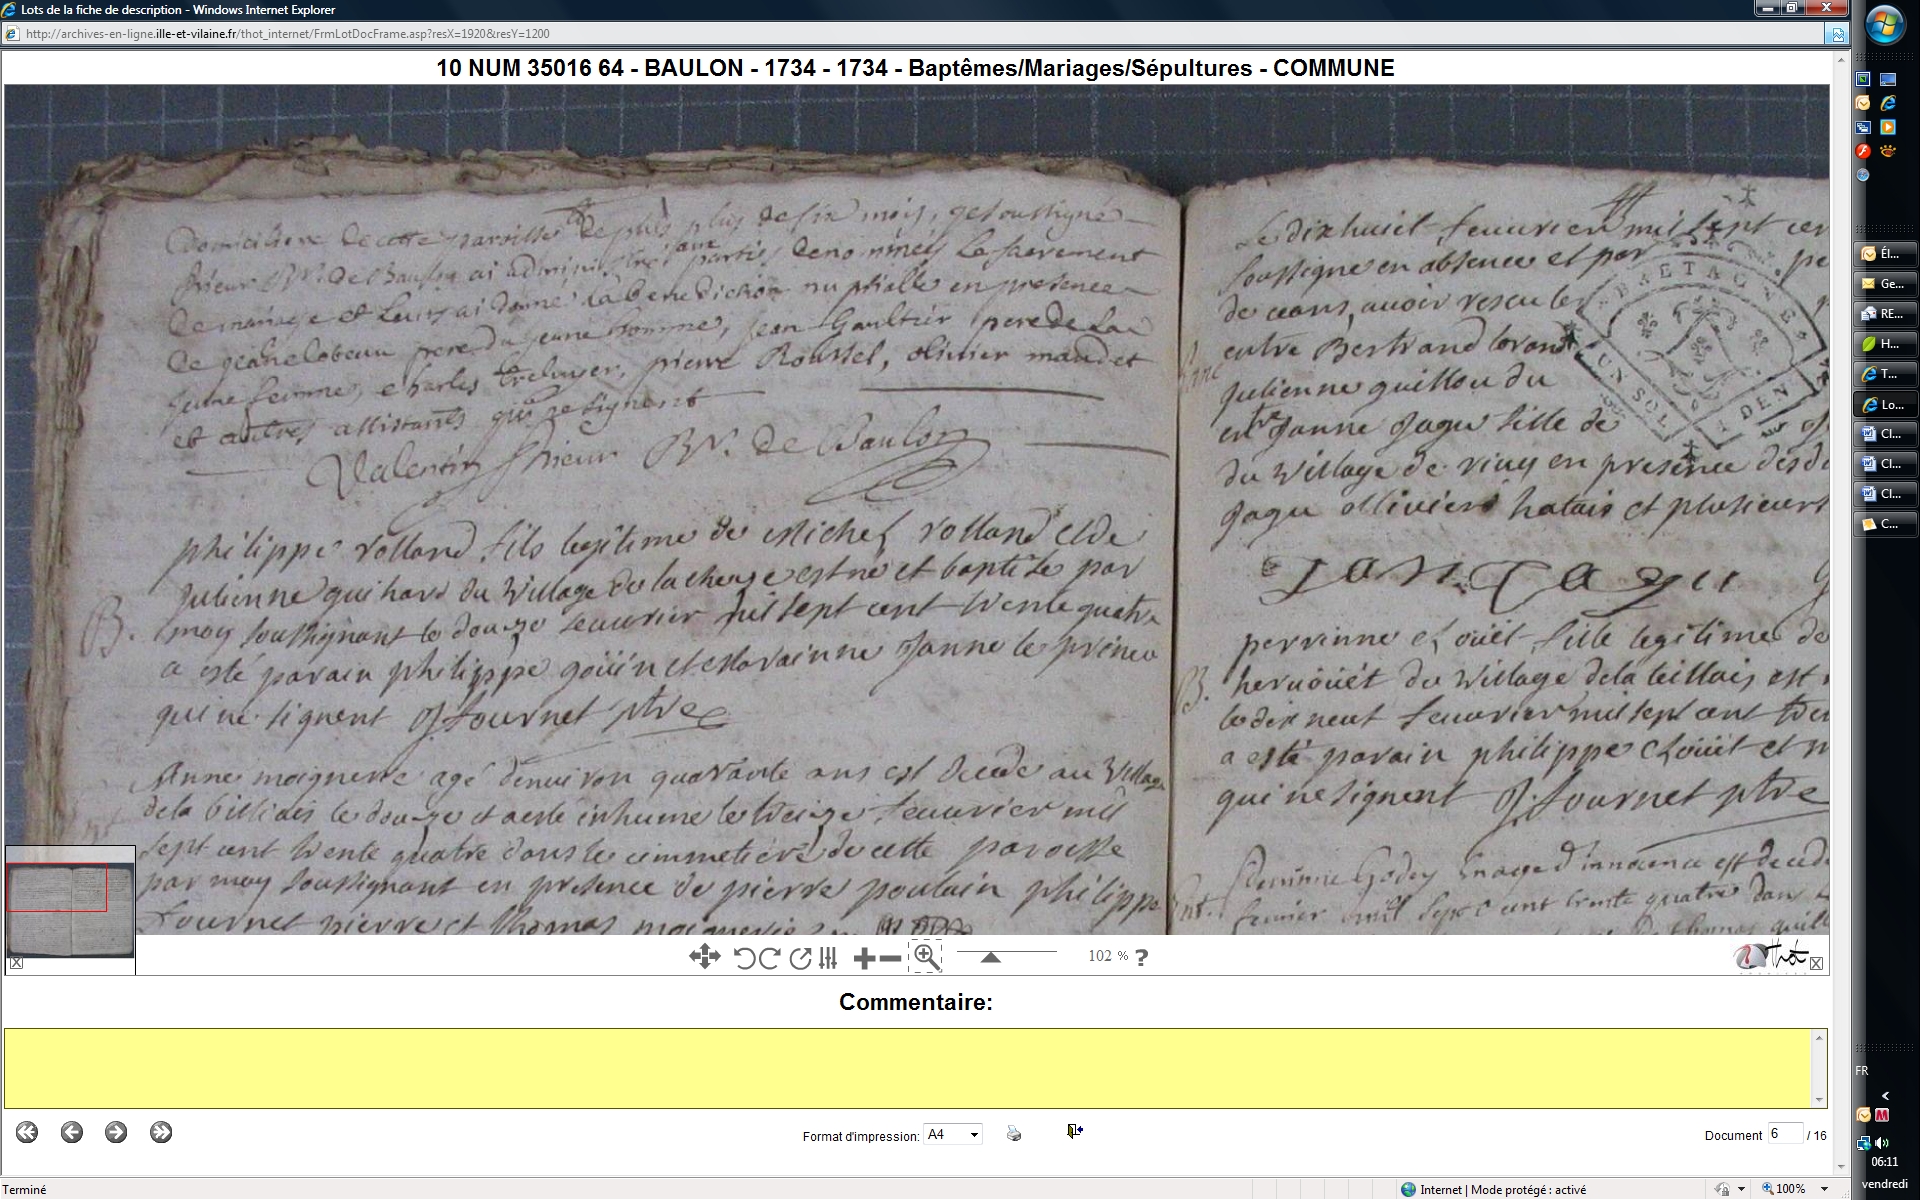 Lots de la fiche de description - Windows Internet Explorer
http://archives-en-ligne.ille-et-vilaine.fr/thot_internet/FrmLotDocFrame.asp?resX=1920&resY=1200
10 NUM 35016 64 - BAULON - 1734 - 1734 - Baptêmes/Mariages/Sépultures - COMMUNE
Domiciliere de cette paroisse de puis plus de six mois, je soussigné
Prieur R. de Baulon ai administré aux parties denominées le sacrement
de mariage et leurs ai donné la benediction nuptialle en presence
de père du jeune homme, jean Gaultier pere de la
jeune femme, charles pierre Roussel, olivier maudet
et autres assistants qui ne signent
Valentin Prieur R. de Baulon
philippe rolland fils legitime de Michel rolland et de
Julienne guihard du village de est né et baptisé par
B. moy soussignant le douze feuvrier mil sept cent trente quatre
a esté parain philippe goüin et Maraine Janne le prince
qui ne signent J fournet ptre
Anne moignerie agé denuiron quarante ans est decede au village
dela billiais le douze et a este inhume le treize feuvrier mil
sept cent trente quatre dans le cimmetiere de cette paroisse
par moy soussignant en presence de pierre poulain philippe
fournet pierre et thomas moignerie
Le dixhuit feuvrier mil sept cen
soussigne en absence et par pe
de ceans, avoir rescu le
entre Bertrand
Julienne guillou du
Janne Jagu fille de
du village de en presence desd
Jagu olliviers hatais et plusieurs
BRETAGNE
UN SOL
DEN
IAN IAGU
perrinne choüet fille legitime de
B. du village dela teillais est
le dix neuf feuvrier mil sept cent tre
a esté parain philippe choüet et m
qui ne signent J. fournet ptre
Godey en age d'innocence est decede
Ent. fevrier mil sept cent trente quatre dans
de thomas guill
102 %
?
Thot
Commentaire:
Format d'impression: A4
Document 6 / 16
Terminé
Internet | Mode protégé : activé
100%
Él...
Ge...
RE...
H...
T...
Lo...
Cl...
Cl...
Cl...
C...
FR
06:11
vendredi